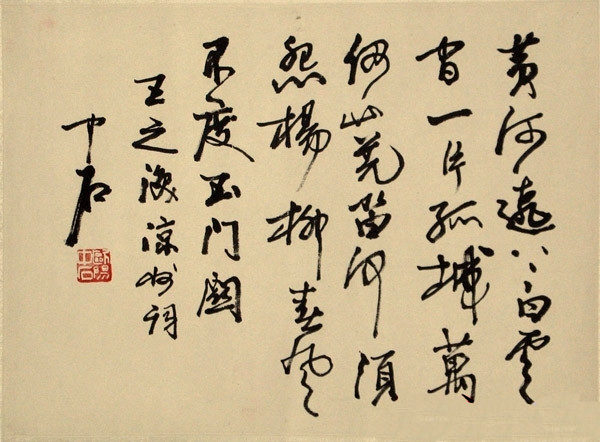 黄河遠上白雲
間一片孤城萬
仞山羌笛何須
怨楊柳春風
不度玉门關
王之渙涼州詞
中石
歐陽中石